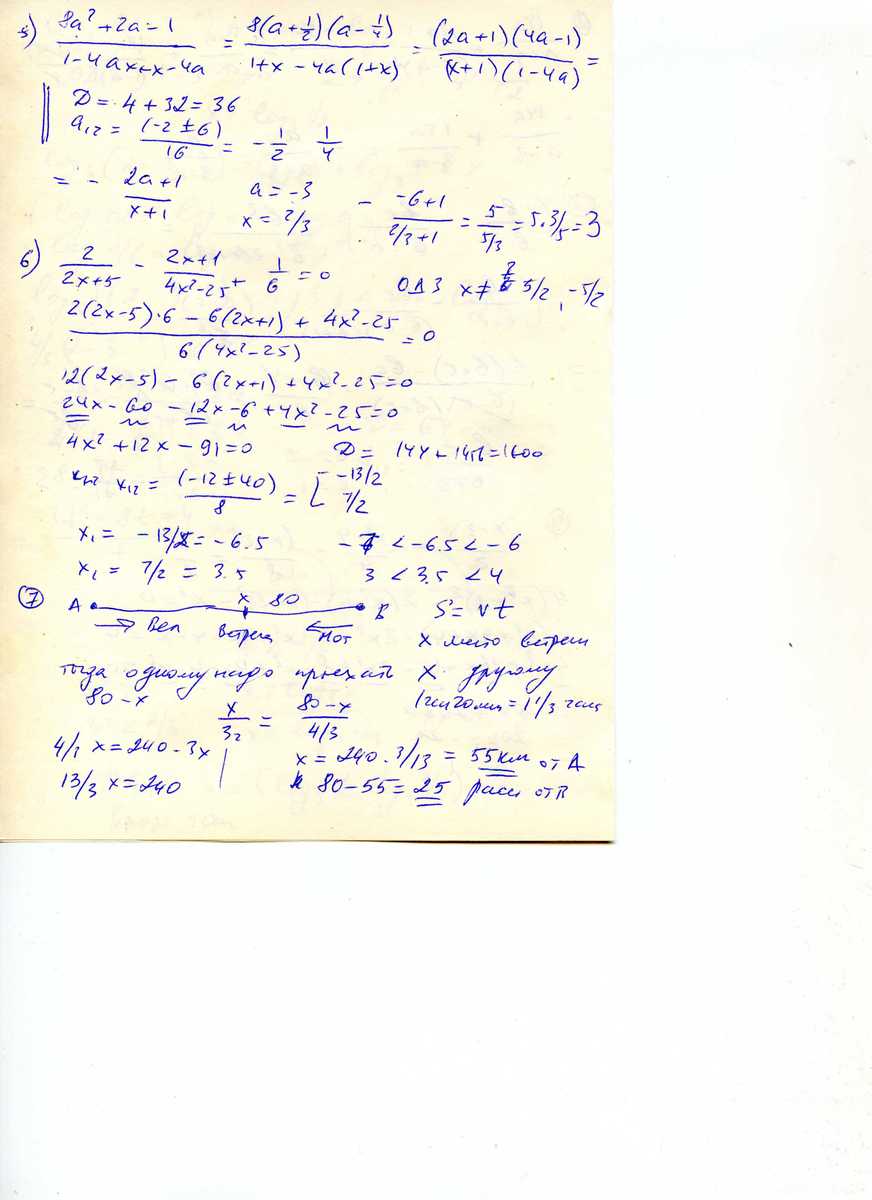 5) (8a² + 2a - 1)/(1-4ax+x-4a) = 8(a+1/2)(a-1/4)/(1+x-4a(1+x)) = (2a+1)(4a-1)/((x+1)(1-4a)) =
D = 4 + 32 = 36
a₁₂ = (-2 ± 6)/16 = -1/2 1/4
= - (2a+1)/(x+1) a = -3 x = 2/3 - (-6+1)/(2/3+1) = 5/(5/3) = 5·3/5 = 3
6) 2/(2x+5) - (2x+1)/(4x²-25) + 1/6 = 0 ОДЗ x ≠ 5/2, -5/2
(2(2x-5)·6 - 6(2x+1) + 4x²-25)/(6(4x²-25)) = 0
12(2x-5) - 6(2x+1) + 4x²-25=0
24x - 60 - 12x - 6 + 4x² - 25 = 0
4x² + 12x - 91 = 0 D = 144 + 1456 = 1600
x₁₂ = (-12 ± 40)/8 = [ -13/2 7/2
x₁ = -13/2 = -6.5 -7 < -6.5 < -6
x₂ = 7/2 = 3.5 3 < 3.5 < 4
7 A x 80 B S = vt
Вел Встреч Мот x место встреч
тогда одному надо проехать x другому
80-x x/3 = (80-x)/(4/3) 1 час 20 мин = 1 1/3 часа
4/3 x = 240 - 3x x = 240 · 3/13 = 55 км от A
13/3 x = 240 80 - 55 = 25 расст от B